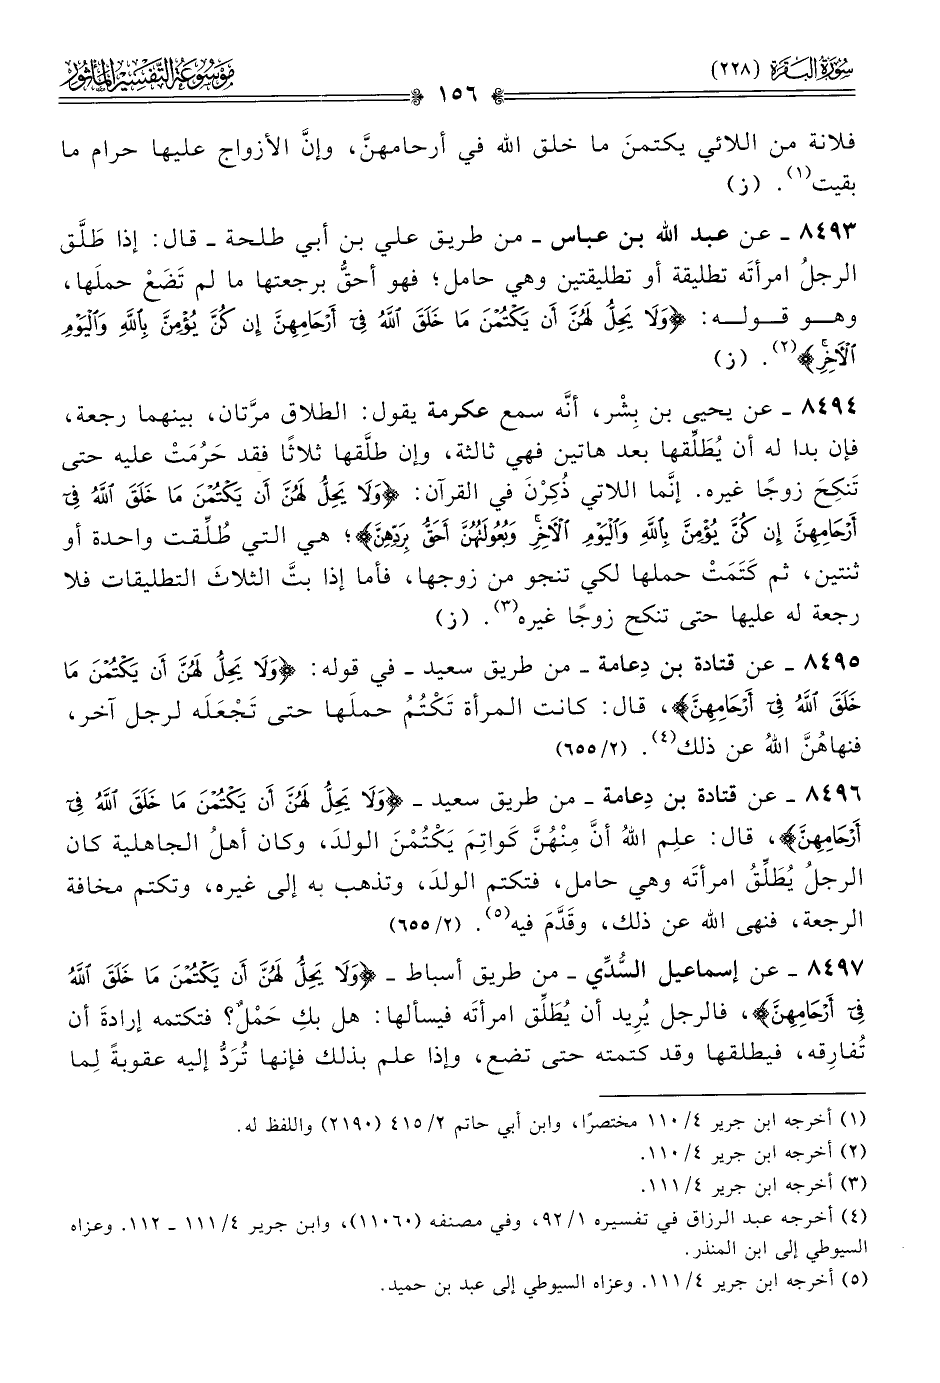 سُورَةُ البَقَرَة (٢٢٨)
١٥٦
مَوْسُوعَةُ التَّفْسِيرِ المَأْثُور
فلانة من اللائي يكتمنَ ما خلق الله في أرحامهنَّ، وإنَّ الأزواج عليها حرام ما
بقيت(١). (ز)
٨٤٩٣ ـ عن عبد الله بن عباس ـ من طريق علي بن أبي طلحة ـ قال: إذا طَلَّق
الرجلُ امرأتَه تطليقة أو تطليقتين وهي حامل؛ فهو أحقُّ برجعتها ما لم تَضَعْ حملَها،
وهــو قــولــه: ﴿وَلَا يَحِلُّ لَهُنَّ أَن يَكْتُمْنَ مَا خَلَقَ ٱللَّهُ فِىٓ أَرْحَامِهِنَّ إِن كُنَّ يُؤْمِنَّ بِٱللَّهِ وَٱلْيَوْمِ
ٱلْأَخِرِۚ﴾(٢). (ز)
٨٤٩٤ ـ عن يحيى بن بِشْر، أنَّه سمع عكرمة يقول: الطلاق مرَّتان، بينهما رجعة،
فإن بدا له أن يُطَلِّقها بعد هاتين فهي ثالثة، وإن طلَّقها ثلاثًا فقد حَرُمَتْ عليه حتى
تَنكِحَ زوجًا غيره. إنَّما اللاتي ذُكِرْنَ في القرآن: ﴿وَلَا يَحِلُّ لَهُنَّ أَن يَكْتُمْنَ مَا خَلَقَ ٱللَّهُ فِىٓ
أَرْحَامِهِنَّ إِن كُنَّ يُؤْمِنَّ بِٱللَّهِ وَٱلْيَوْمِ ٱلْأَخِرِۚ وَبُعُولَتُهُنَّ أَحَقُّ بِرَدِّهِنَّ﴾؛ هي التي طُلِّقت واحدة أو
ثنتين، ثم كَتَمَتْ حملها لكي تنجو من زوجها، فأما إذا بتَّ الثلاثَ التطليقات فلا
رجعة له عليها حتى تنكح زوجًا غيره(٣). (ز)
٨٤٩٥ ـ عن قتادة بن دِعامة ـ من طريق سعيد ـ في قوله: ﴿وَلَا يَحِلُّ لَهُنَّ أَن يَكْتُمْنَ مَا
خَلَقَ ٱللَّهُ فِىٓ أَرْحَامِهِنَّ﴾، قال: كانت المرأة تَكْتُمُ حملَها حتى تَجْعَلَه لرجل آخر،
فنهاهُنَّ اللهُ عن ذلك(٤). (٢/ ٦٥٥)
٨٤٩٦ ـ عن قتادة بن دِعامة ـ من طريق سعيد ـ ﴿وَلَا يَحِلُّ لَهُنَّ أَن يَكْتُمْنَ مَا خَلَقَ ٱللَّهُ فِىٓ
أَرْحَامِهِنَّ﴾، قال: علِم اللهُ أنَّ مِنْهُنَّ كَواتِمَ يَكْتُمْنَ الولدَ، وكان أهلُ الجاهلية كان
الرجلُ يُطَلِّقُ امرأتَه وهي حامل، فتكتم الولدَ، وتذهب به إلى غيره، وتكتم مخافة
الرجعة، فنهى الله عن ذلك، وقَدَّمَ فيه(٥). (٢/ ٦٥٥)
٨٤٩٧ ـ عن إسماعيل السُّدِّي ـ من طريق أسباط ـ ﴿وَلَا يَحِلُّ لَهُنَّ أَن يَكْتُمْنَ مَا خَلَقَ ٱللَّهُ
فِىٓ أَرْحَامِهِنَّ﴾، فالرجل يُرِيد أن يُطَلِّق امرأتَه فيسألها: هل بكِ حَمْلٌ؟ فتكتمه إرادةَ أن
تُفارِقه، فيطلقها وقد كتمته حتى تضع، وإذا علم بذلك فإنها تُرَدُّ إليه عقوبةً لِما
(١) أخرجه ابن جرير ٤/ ١١٠ مختصرًا، وابن أبي حاتم ٢/ ٤١٥ (٢١٩٠) واللفظ له.
(٢) أخرجه ابن جرير ٤/ ١١٠.
(٣) أخرجه ابن جرير ٤/ ١١١.
(٤) أخرجه عبد الرزاق في تفسيره ١/ ٩٢، وفي مصنفه (١١٠٦٠)، وابن جرير ٤/ ١١١ ـ ١١٢. وعزاه
السيوطي إلى ابن المنذر.
(٥) أخرجه ابن جرير ٤/ ١١١. وعزاه السيوطي إلى عبد بن حميد.